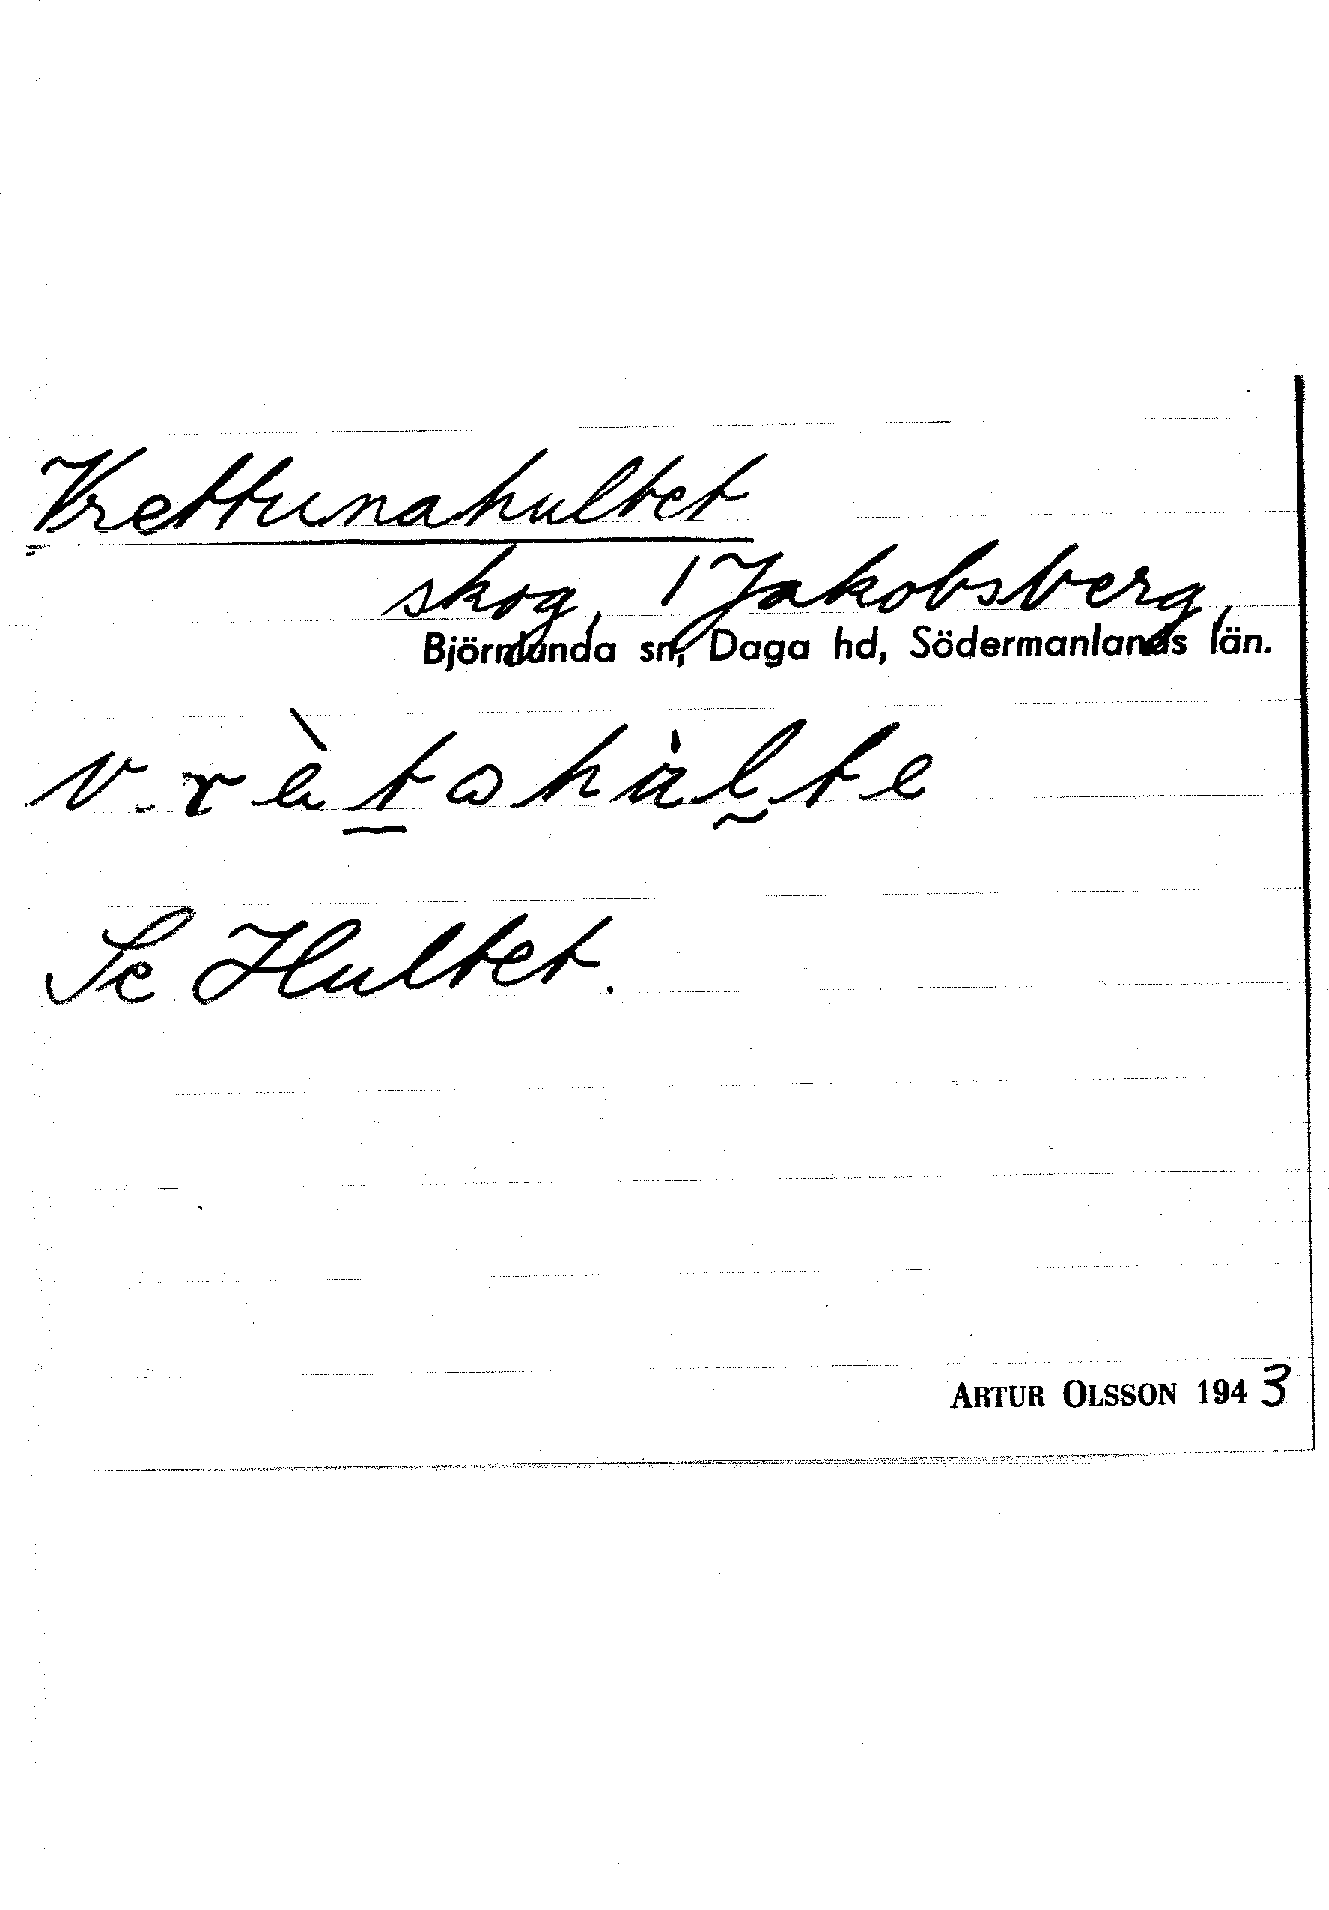 Vrettunahultet
skog, 1 Jakobsberg,
Björnlunda sn, Daga hd, Södermanlands län.
Se Hultet.
ARTUR OLSSON 1943